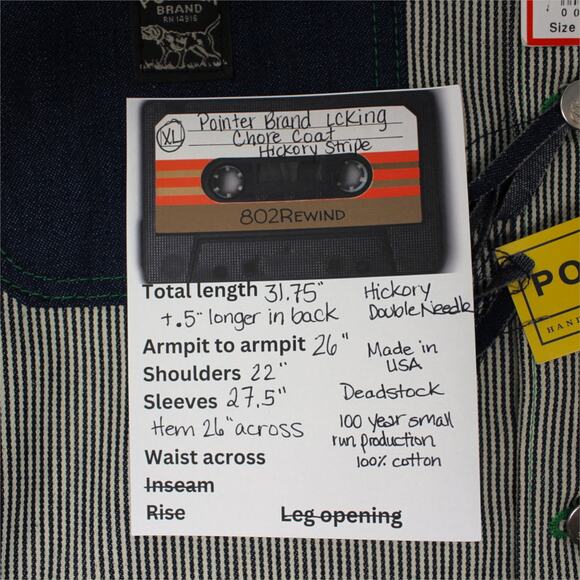 BRAND
RN 14916
Size
XL
Pointer Brand LCKing
Chore Coat
Hickory Stripe
802REWIND
Total length 31.75"
+.5" longer in back
Armpit to armpit 26"
Shoulders 22"
Sleeves 27.5"
Hem 26" across
Waist across
Inseam
Rise
Leg opening
Hickory
Double Needle
Made in
USA
Deadstock
100 year small
run production
100% cotton
PO
HAND